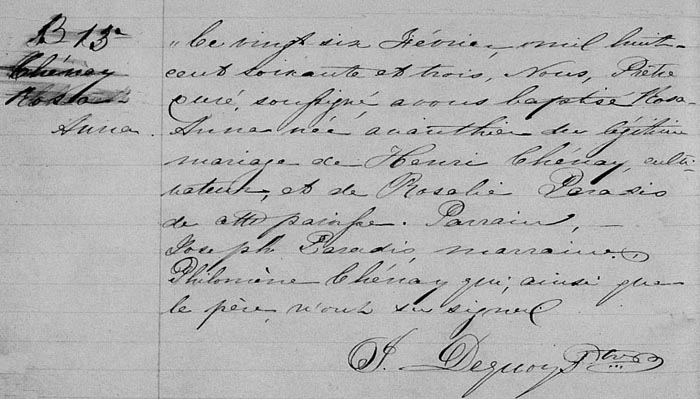 B 13e
Chénay
Rosa
Anna.
"Ce vingt six Février, mil huit-
cent soixante et trois, Nous, Prêtre
curé, soussigné avons baptisé Rosa
Anna née avanthier du légitime
mariage de Henri Chénay, culti-
vateur, et de Rosalie Paradis
de cette paroisse. Parrain, –
Joseph Paradis, marraine,
Philomène Chénay qui, ainsi que
le père, n'ont su signer
J. Deguoy Ptre